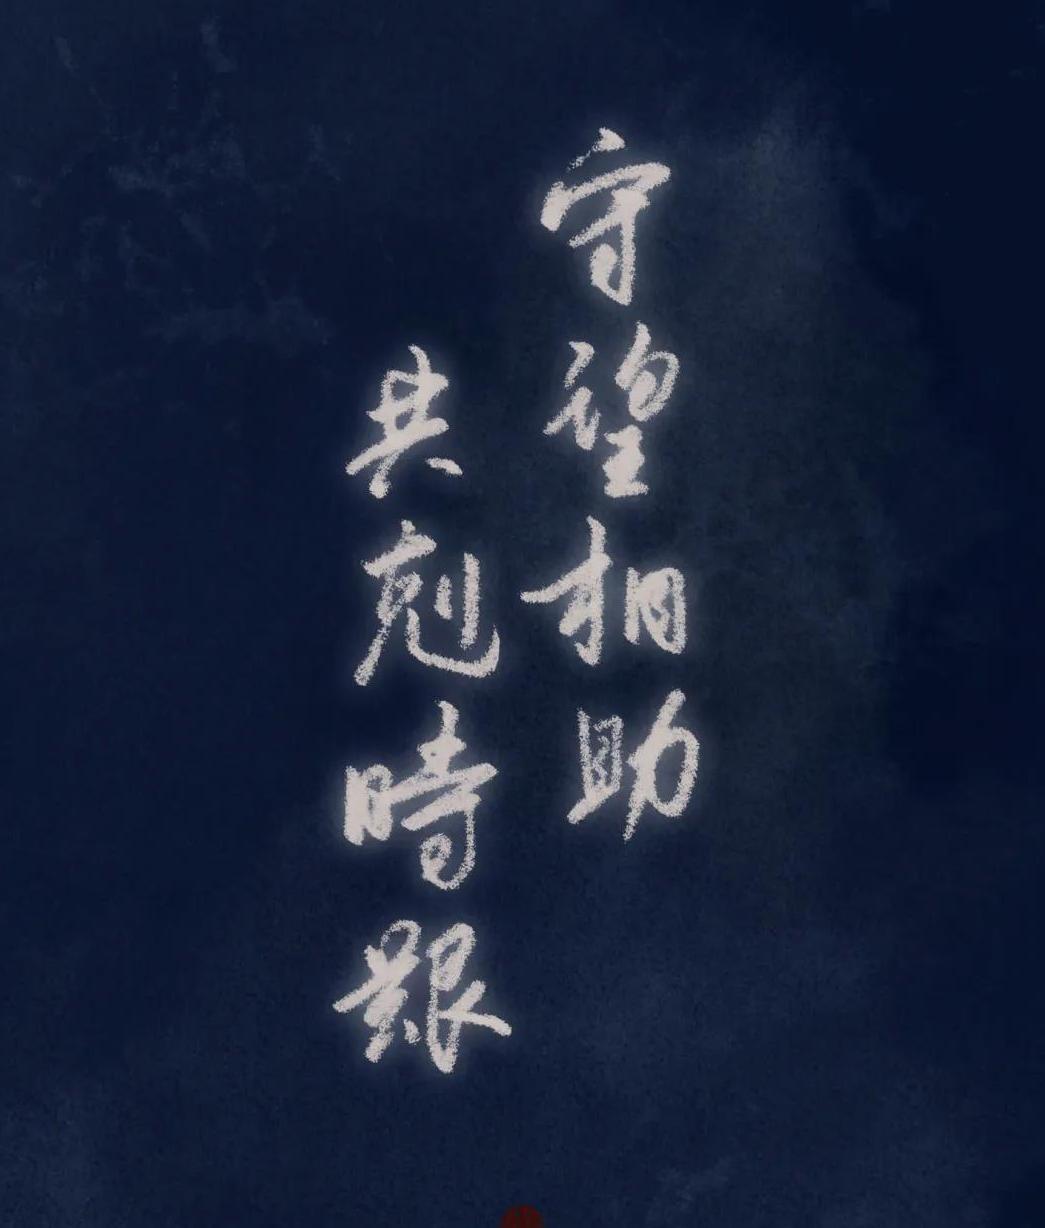 守望相助
共剋時艱